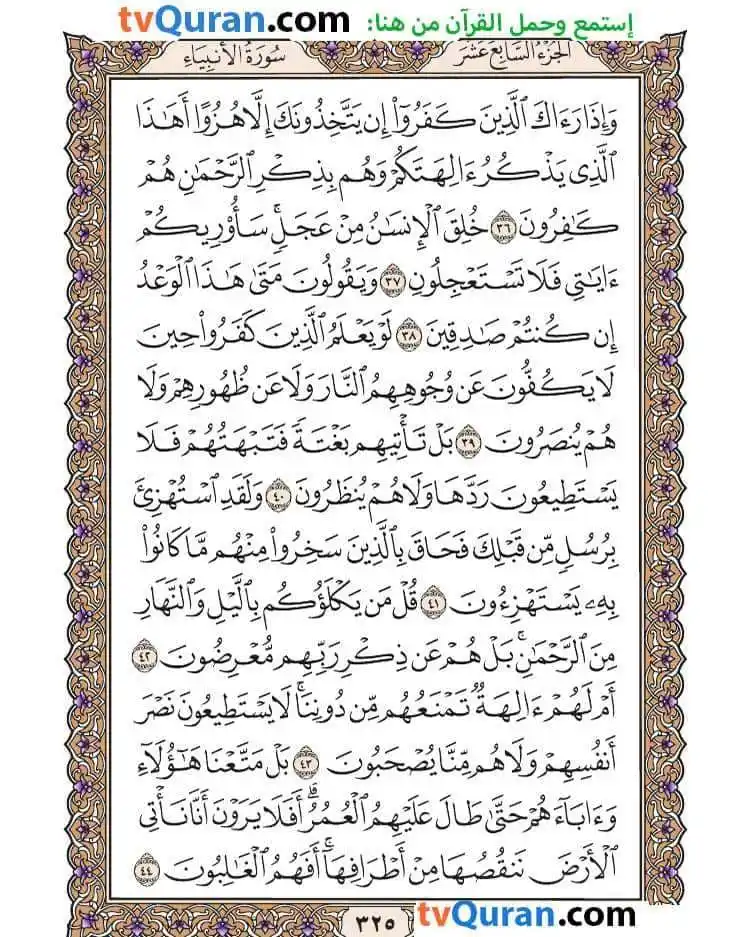 إستمع وحمل القرآن من هنا: tvQuran.com
الجزء السابع عشر سورة الأنبياء
وَإِذَا رَءَاكَ ٱلَّذِينَ كَفَرُوٓاْ إِن يَتَّخِذُونَكَ إِلَّا هُزُوًا أَهَٰذَا
ٱلَّذِي يَذۡكُرُ ءَالِهَتَكُمۡ وَهُم بِذِكۡرِ ٱلرَّحۡمَٰنِ هُمۡ
كَٰفِرُونَ ٣٦ خُلِقَ ٱلۡإِنسَٰنُ مِنۡ عَجَلٖۚ سَأُوْرِيكُمۡ
ءَايَٰتِي فَلَا تَسۡتَعۡجِلُونِ ٣٧ وَيَقُولُونَ مَتَىٰ هَٰذَا ٱلۡوَعۡدُ
إِن كُنتُمۡ صَٰدِقِينَ ٣٨ لَوۡ يَعۡلَمُ ٱلَّذِينَ كَفَرُواْ حِينَ
لَا يَكُفُّونَ عَن وُجُوهِهِمُ ٱلنَّارَ وَلَا عَن ظُهُورِهِمۡ وَلَا
هُمۡ يُنصَرُونَ ٣٩ بَلۡ تَأۡتِيهِم بَغۡتَةٗ فَتَبۡهَتُهُمۡ فَلَا
يَسۡتَطِيعُونَ رَدَّهَا وَلَا هُمۡ يُنظَرُونَ ٤٠ وَلَقَدِ ٱسۡتُهۡزِئَ
بِرُسُلٖ مِّن قَبۡلِكَ فَحَاقَ بِٱلَّذِينَ سَخِرُواْ مِنۡهُم مَّا كَانُواْ
بِهِۦ يَسۡتَهۡزِءُونَ ٤١ قُلۡ مَن يَكۡلَؤُكُم بِٱلَّيۡلِ وَٱلنَّهَارِ
مِنَ ٱلرَّحۡمَٰنِۚ بَلۡ هُمۡ عَن ذِكۡرِ رَبِّهِم مُّعۡرِضُونَ ٤٢
أَمۡ لَهُمۡ ءَالِهَةٞ تَمۡنَعُهُم مِّن دُونِنَاۚ لَا يَسۡتَطِيعُونَ نَصۡرَ
أَنفُسِهِمۡ وَلَا هُم مِّنَّا يُصۡحَبُونَ ٤٣ بَلۡ مَتَّعۡنَا هَٰٓؤُلَآءِ
وَءَابَآءَهُمۡ حَتَّىٰ طَالَ عَلَيۡهِمُ ٱلۡعُمُرُۗ أَفَلَا يَرَوۡنَ أَنَّا نَأۡتِي
ٱلۡأَرۡضَ نَنقُصُهَا مِنۡ أَطۡرَافِهَآۚ أَفَهُمُ ٱلۡغَٰلِبُونَ ٤٤
٣٢٥ tvQuran.com